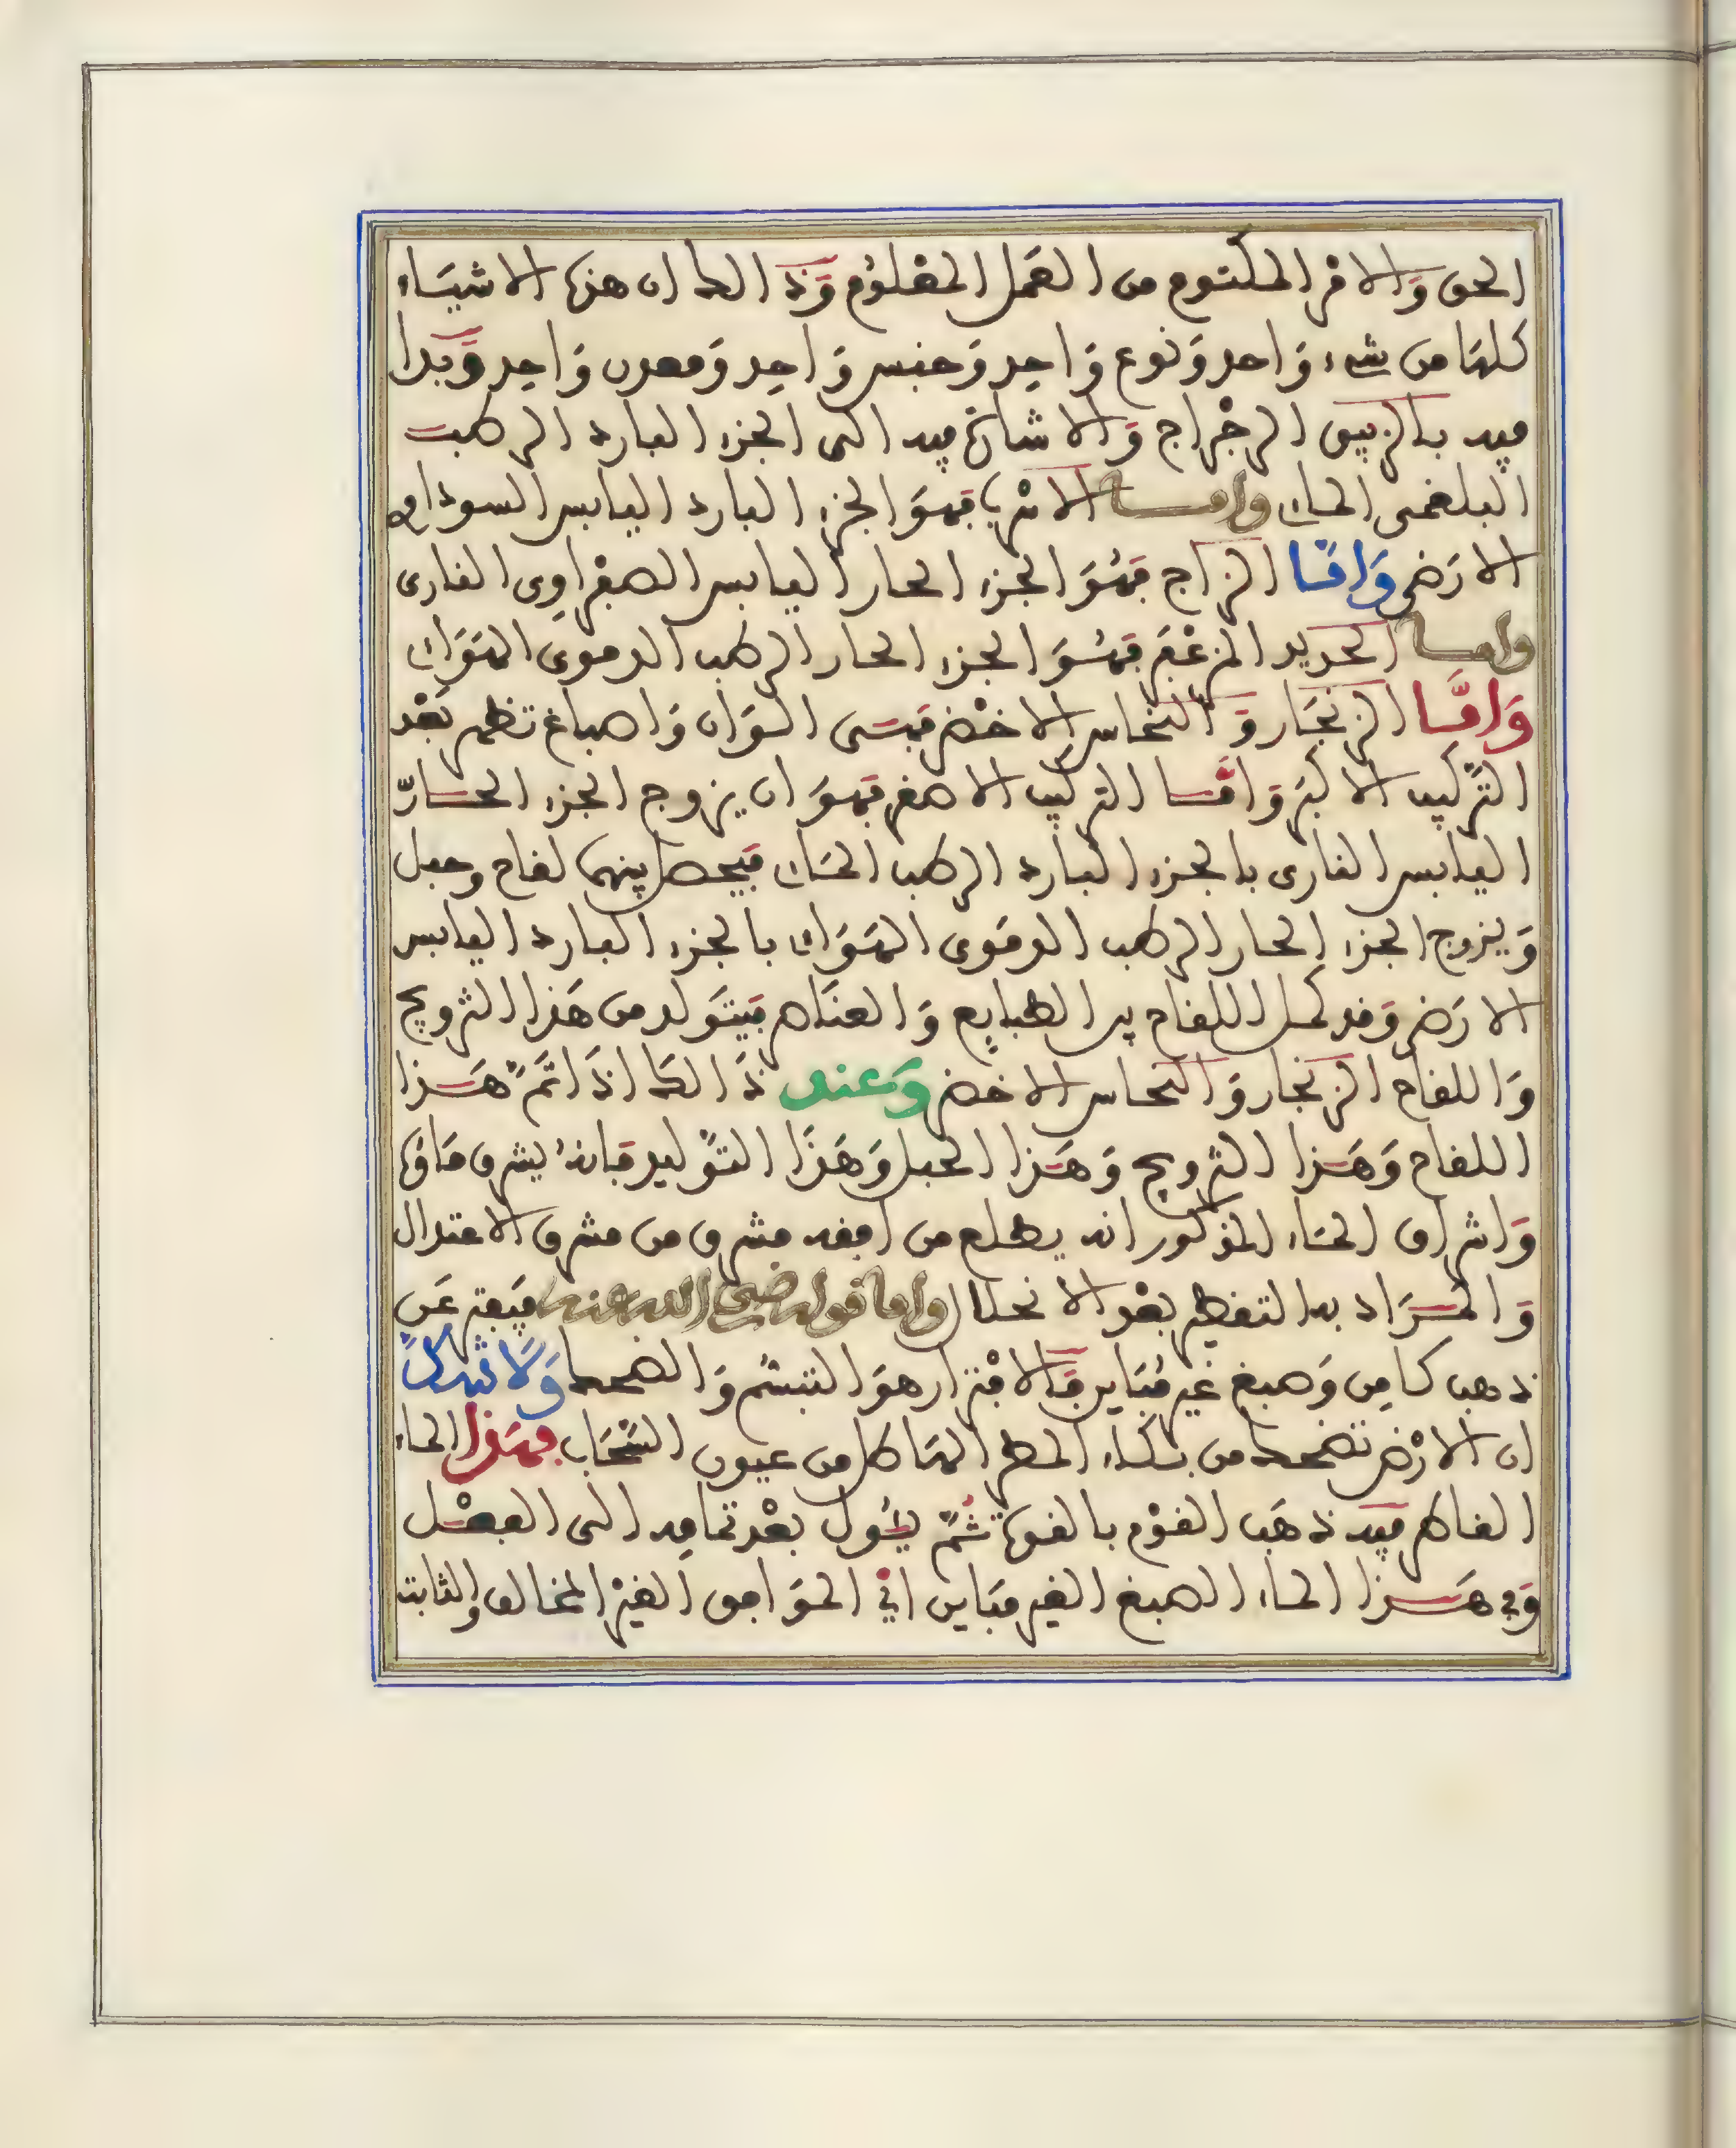 الحق والامر المكتوم من العمل المعلوم وذالك ان هذه الاشياء
كلها من شيء واحد ونوع واحد وجنس واحد ومعدن واحد وبدا
فيه بالزيبق الرجراج والاشارة فيه الى الجزء البارد الرطب
البلغمي الماءي واما الاثرب فهو الجزء البارد اليابس السوداوي
الارضي واما الزاج فهو الجزء الحار اليابس الصفراوي الناري
واما الحديد المزعفر فهو الجزء الحار الرطب الدموي الهواءي
واما الزنجار والنحاس الاخضر فهي الوان واصباغ تظهر بعد
التركيب الاكبر واما التركيب الاصغر فهو ان يزوج الجزء الحار
اليابس الناري بالجزء البارد الرطب الماءي فيحصل بينهما لقاح وحبل
ويزوج الجزء الحار الرطب الدموي الهواءي بالجزء البارد اليابس
الارضي وقد كمل اللقاح بين الطبايع والعناصر فيتولد من هذا التزويج
واللقاح الزنجار والنحاس الاخضر وعند ذالك اذا تم هذا
اللقاح وهذا التزويج وهذا الحبل وهذا التوليد فانه يشرق ماؤها
واشراق الماء المذكور انه يطلع من افقه مشرق من مشرق الاعتدال
والمراد به التقطير بعد الانحلال واما قوله رضي الله عنه فيفتر عن
ذهب كامن وصبغ غير مباين فالافترار هو التبسم والضحك ولا شك
ان الارض تضحك من بكاء المطر الهاطل من عيون السحاب فهذا الماء
القاطر فيه ذهب القوم بالقوة ثم يئول بعد تمامه الى الفعل
وفي هذا الماء الصبغ الغير مباين اي الموافق الغير المخالف والثابت